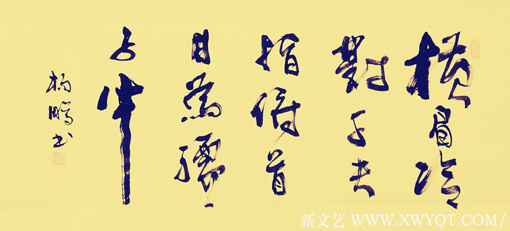 横眉冷
對千夫
指俯首
甘為孺
子牛
杨鹏书
新文艺 WWW.XWYQT.COM/